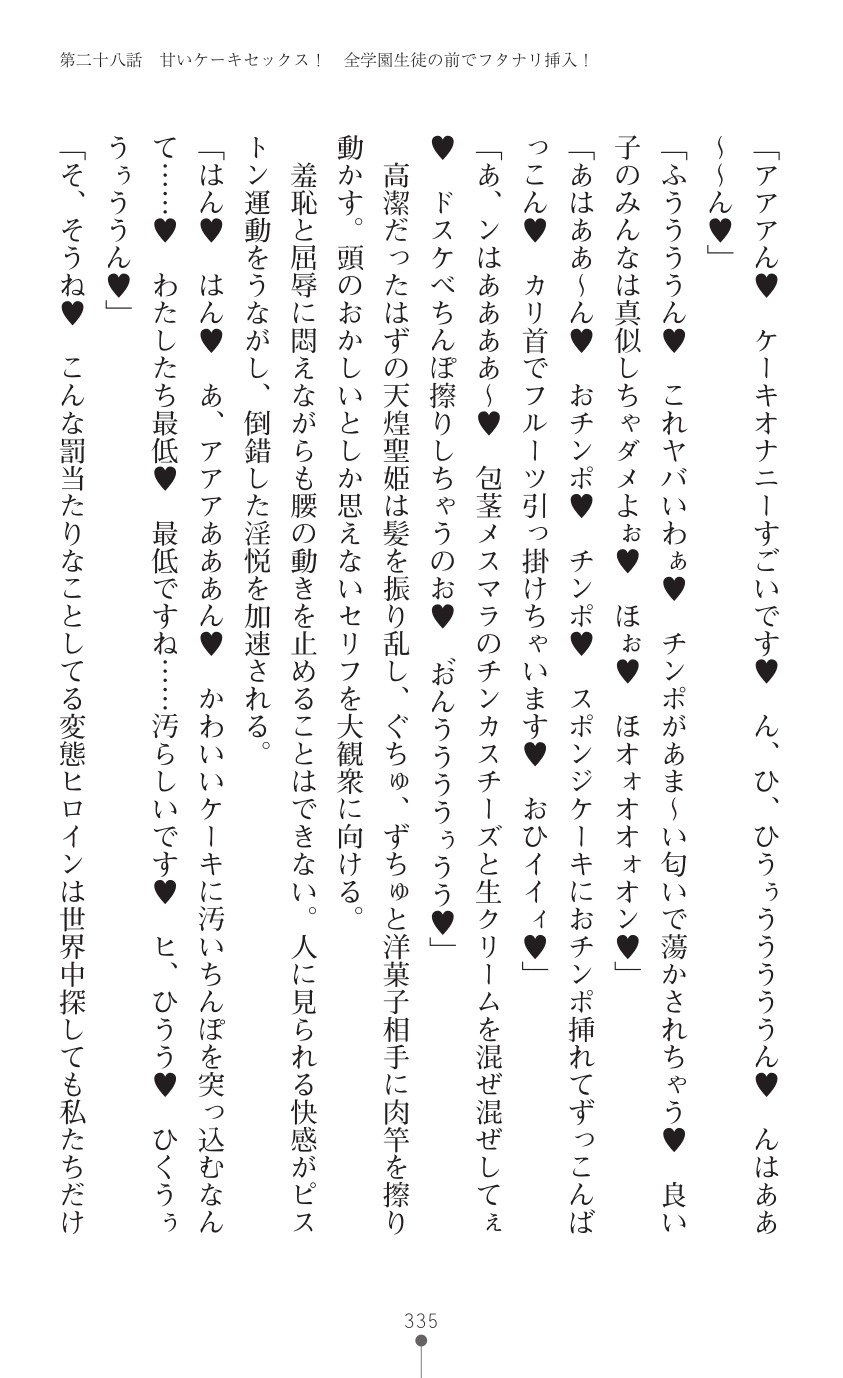 第二十八話　甘いケーキセックス！　全学園生徒の前でフタナリ挿入！
「アアアん♥　ケーキオナニーすごいです♥　ん、ひ、ひうぅうううううん♥　んはああ
～～ん♥」
「ふううううん♥　これヤバいわぁ♥　チンポがあま～い匂いで蕩かされちゃう♥　良い
子のみんなは真似しちゃダメよぉ♥　ほぉ♥　ほオォオオォオン♥」
「あはああ～ん♥　おチンポ♥　チンポ♥　スポンジケーキにおチンポ挿れてずっこんば
っこん♥　カリ首でフルーツ引っ掛けちゃいます♥　おひイイィ♥」
「あ、ンはああああ～♥　包茎メスマラのチンカスチーズと生クリームを混ぜ混ぜしてぇ
♥　ドスケベちんぽ擦りしちゃうのお♥　お゛んううううぅうう♥」
　高潔だったはずの天煌聖姫は髪を振り乱し、ぐちゅ、ずちゅと洋菓子相手に肉竿を擦り
動かす。頭のおかしいとしか思えないセリフを大観衆に向ける。
　羞恥と屈辱に悶えながらも腰の動きを止めることはできない。人に見られる快感がピス
トン運動をうながし、倒錯した淫悦を加速される。
「はん♥　はん♥　あ、アアアあああん♥　かわいいケーキに汚いちんぽを突っ込むなん
て……♥　わたしたち最低♥　最低ですね……汚らしいです♥　ヒ、ひうう♥　ひくうぅ
うぅううん♥」
「そ、そうね♥　こんな罰当たりなことしてる変態ヒロインは世界中探しても私たちだけ
335